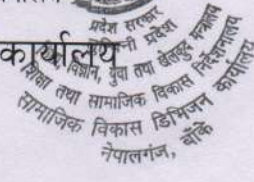 प्रदेश सरकार
लुम्बिनी प्रदेश
शिक्षा, विज्ञान, युवा तथा खेलकुद मन्त्रालय
शिक्षा तथा सामाजिक विकास निर्देशनालय
सामाजिक विकास डिभिजन कार्यालय
नेपालगंज, बाँके
कार्यालय